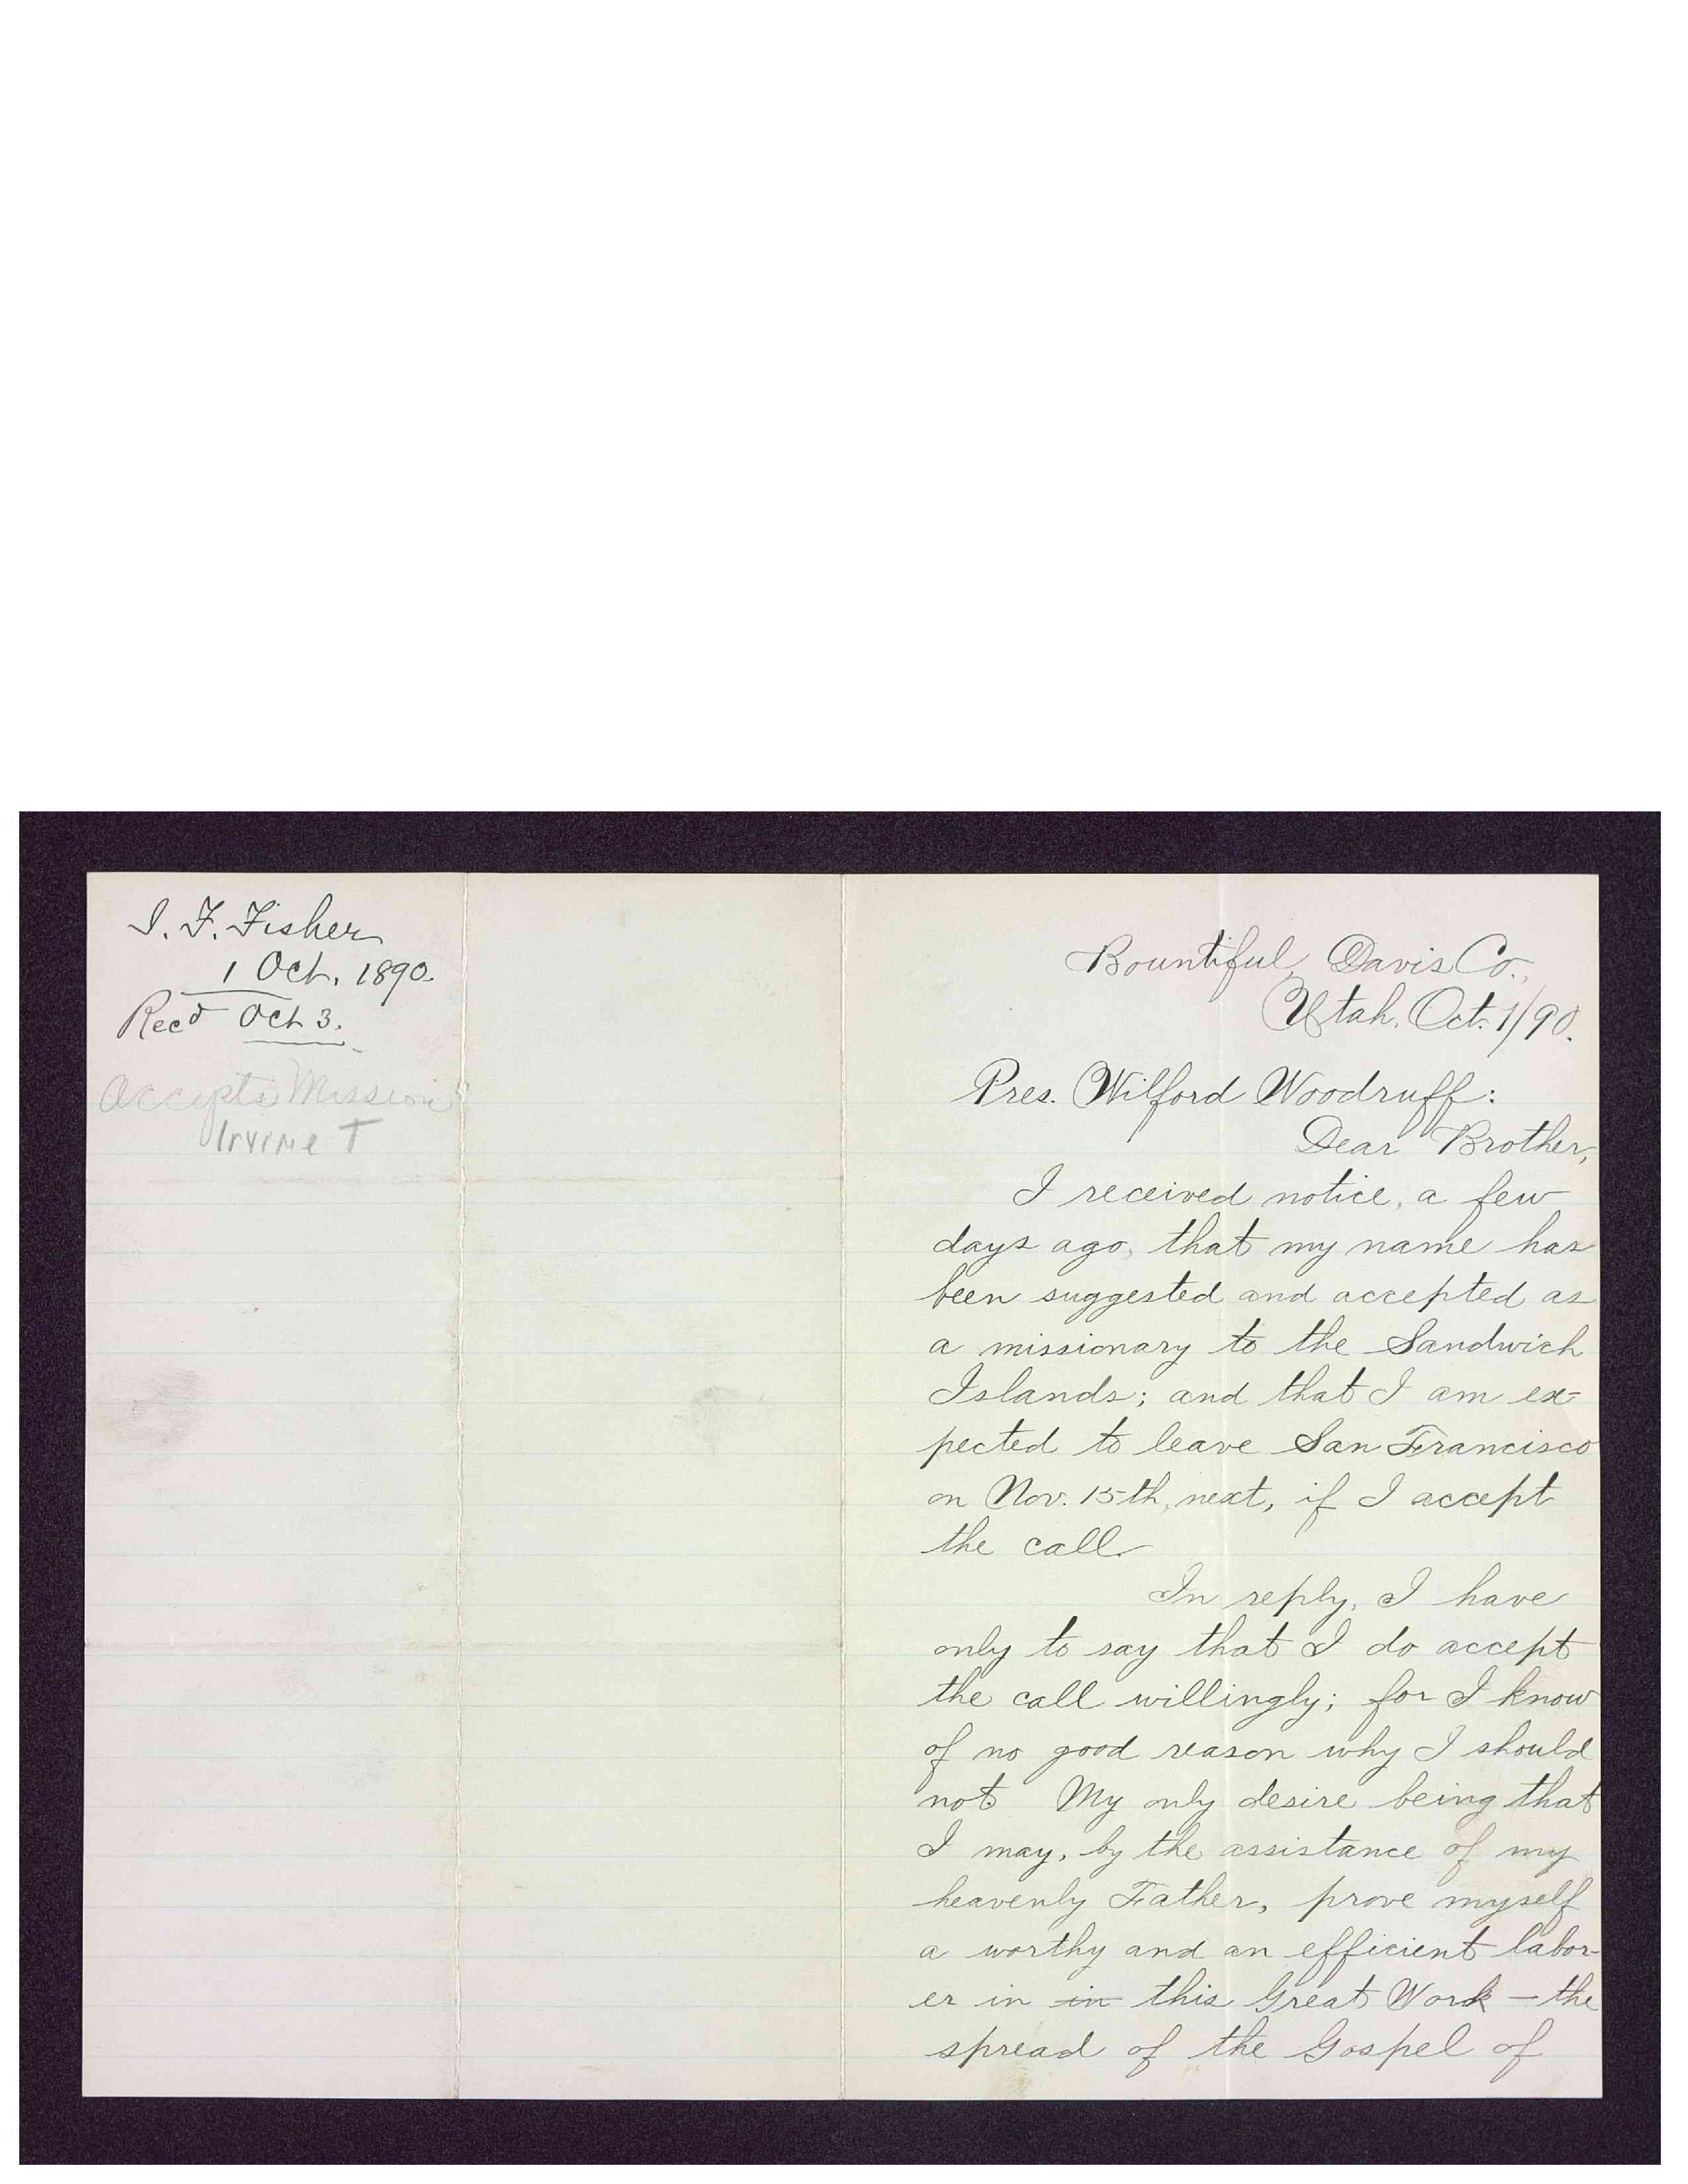 I. F. Fisher
1 Oct. 1890.
Recd Oct 3.
Accepts Mission
Irvine T
Bountiful, Davis Co.,
Utah, Oct. 1/90.
Pres. Wilford Woodruff:
Dear Brother,
I received notice, a few
days ago, that my name has
been suggested and accepted as
a missionary to the Sandwich
Islands; and that I am ex-
pected to leave San Francisco
on Nov. 15th, next, if I accept
the call.
In reply, I have
only to say that I do accept
the call willingly; for I know
of no good reason why I should
not. My only desire being that
I may, by the assistance of my
heavenly Father, prove myself
a worthy and an efficient labor-
er in in this Great Work – the
spread of the Gospel of